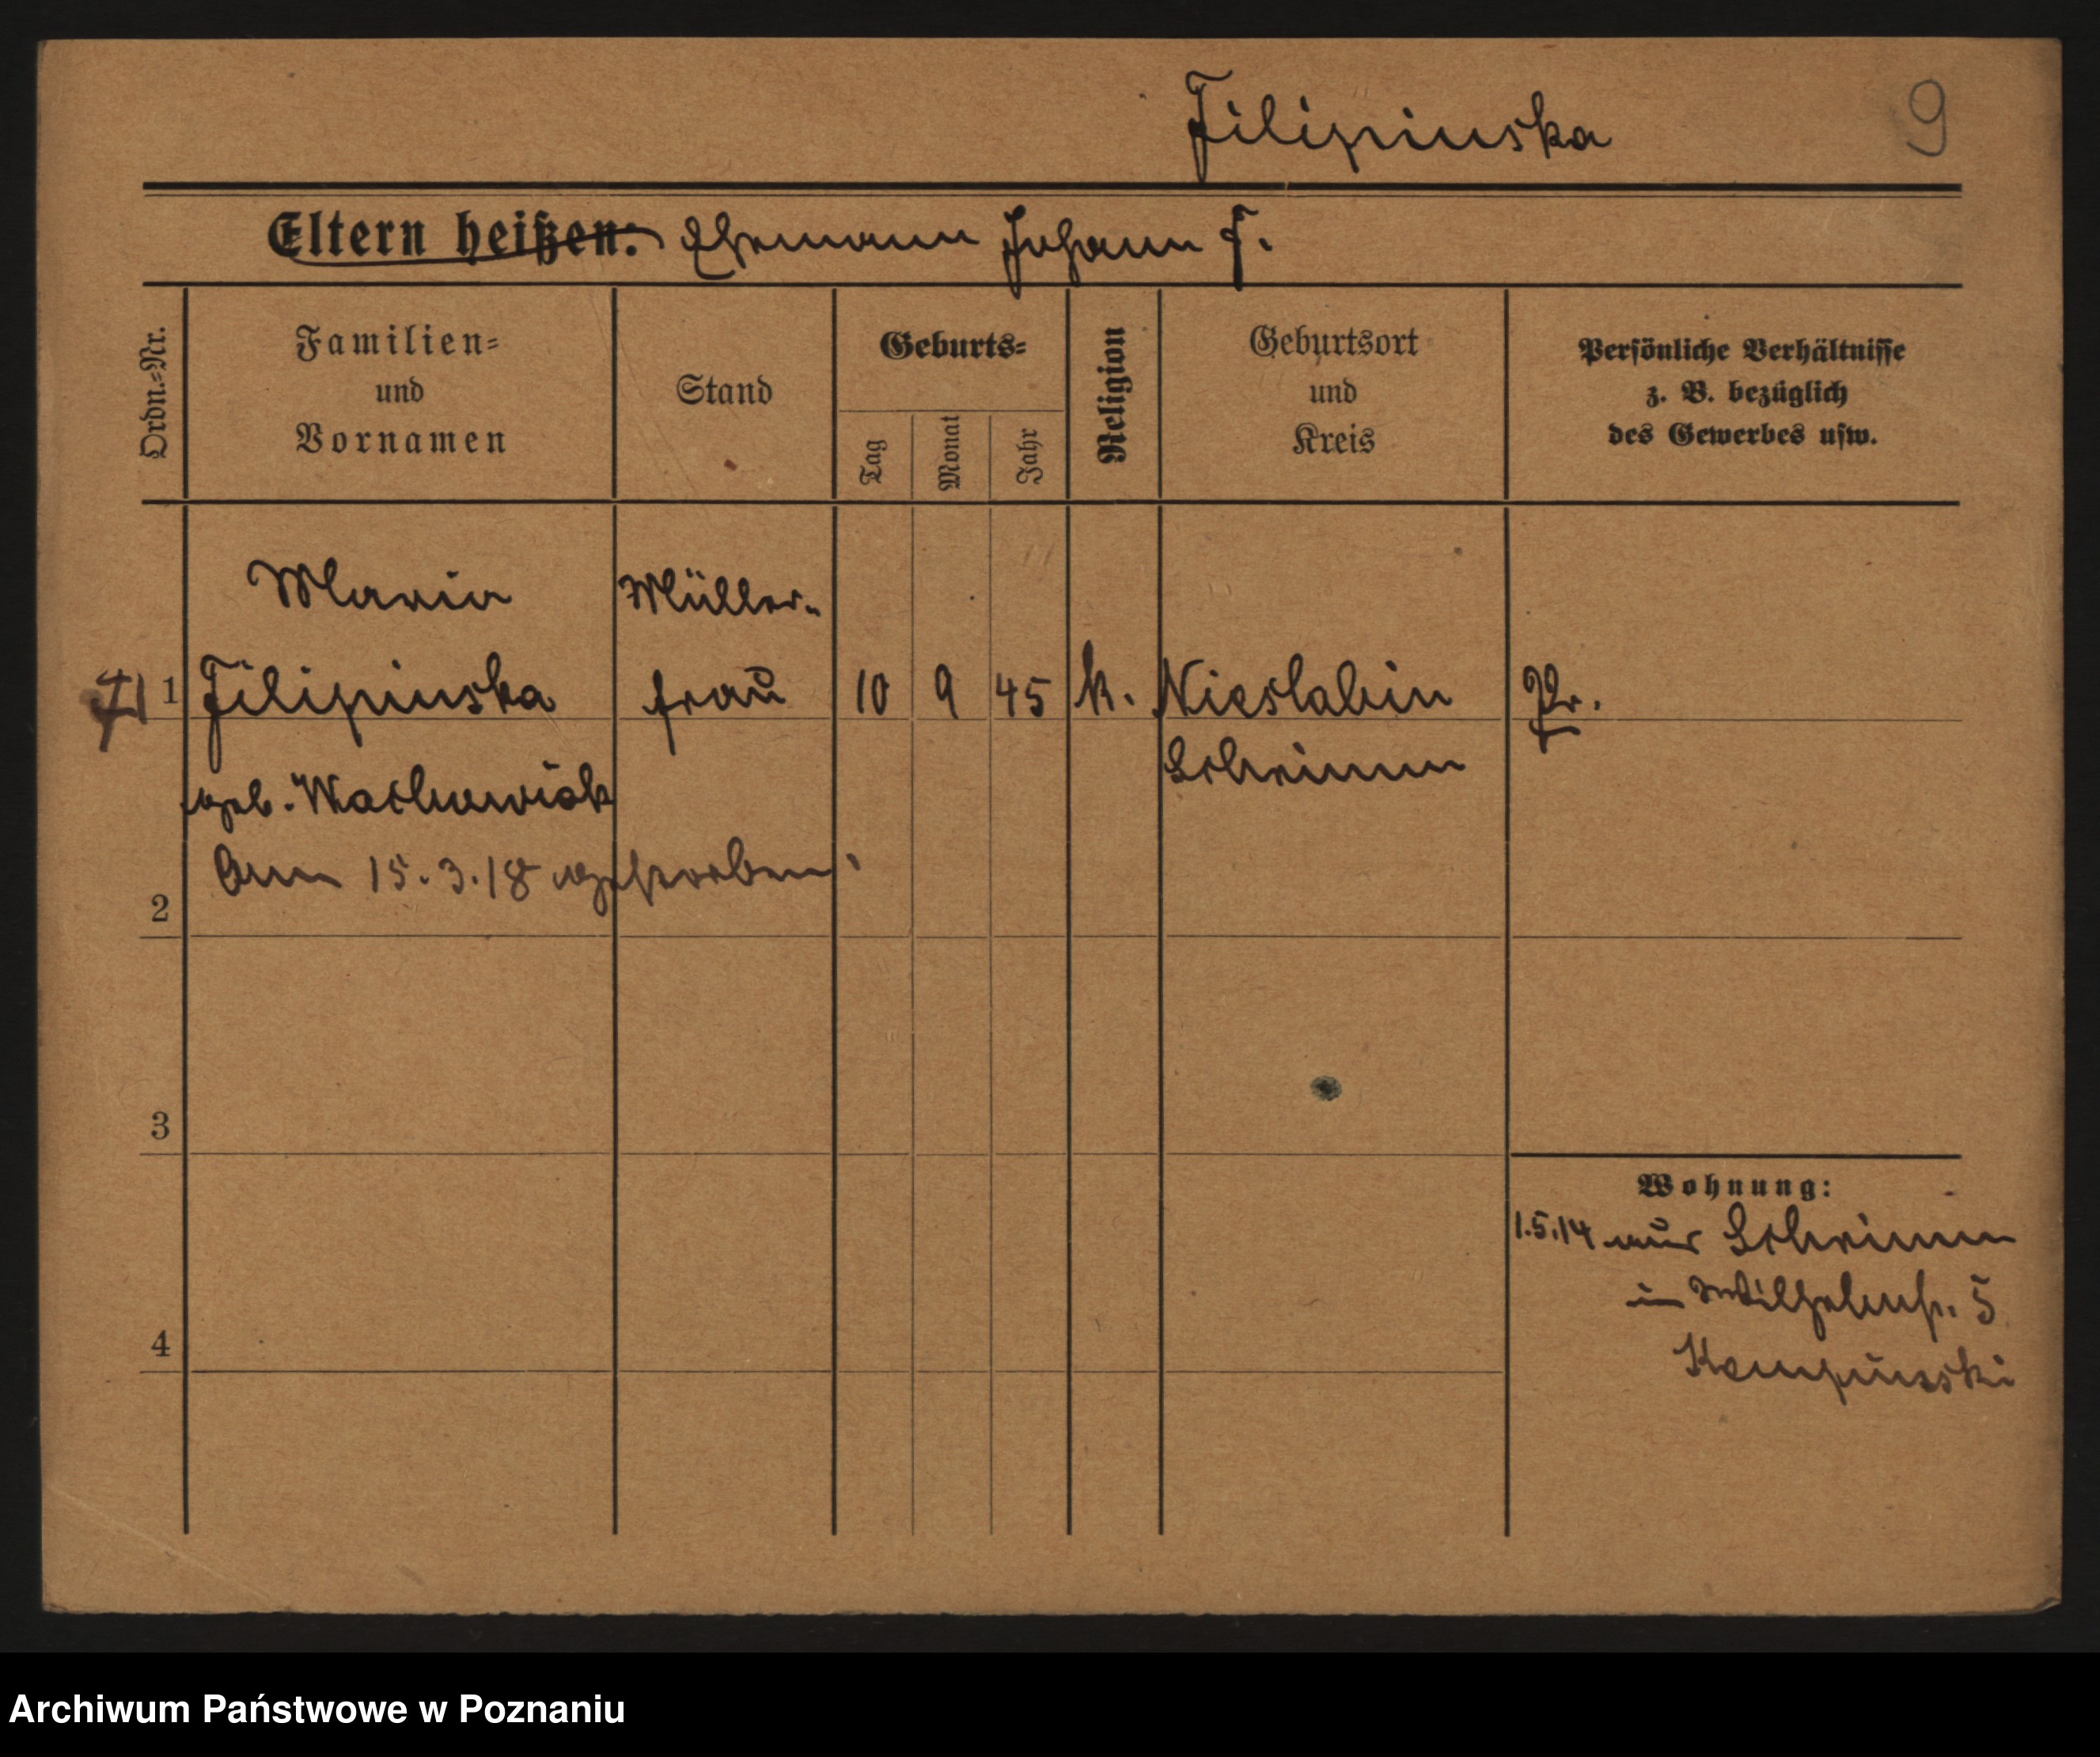 Filipinska
9
Eltern heißen: Ehemann Johann F.
Ordn.=Nr.
Familien=
und
Vornamen
Stand
Geburts=
Tag
Monat
Jahr
Religion
Geburtsort
und
Kreis
Persönliche Verhältnisse
z. B. bezüglich
des Gewerbes usw.
Maria
Müller-
1
Filipinska
frau
10
9
45
k.
Nieslabin
Pr.
Schrimm
geb. Wachowiak
Am 15.3.18 gestorben
2
3
4
Wohnung:
1.5.14 aus Schrimm
in Wilhelmstr. 5
Archiwum Państwowe w Poznaniu